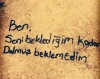 Ben,
Seni beklediğim kadar
Dolmuş beklemedim